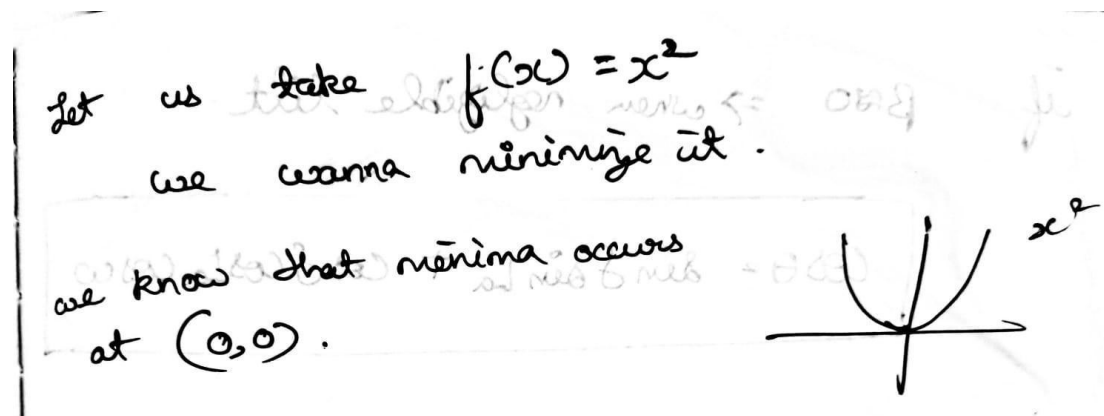 Let us take f(x) = x²
we wanna minimize it.
we know that minima occurs
at (0,0).
x²